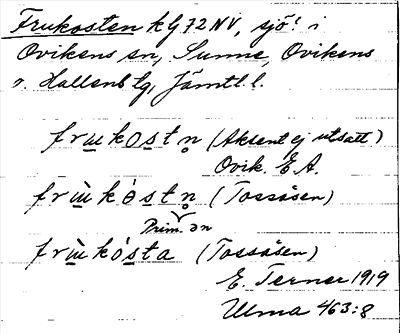 Frukosten kG72NV, sjö! i
Ovikens sn, Sunne, Ovikens
o. Hallens tg, Jämtl. l.
frɯkostn̥ (Aksent ej utsatt)
Ovik. E A.
frɯ̀kòstn̥ (Tossåsen)
Prim. ən
frɯ̀kòsta (Tossåsen)
E. Terner 1919
Ulma 463:8